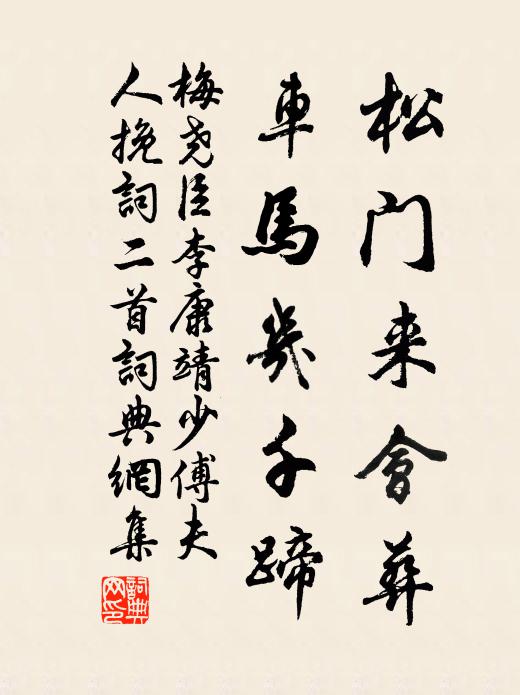 松门来會葬
車馬幾千蹄
梅尧臣李康靖少傅夫
人挽詞二首詞典網集
詞典網印